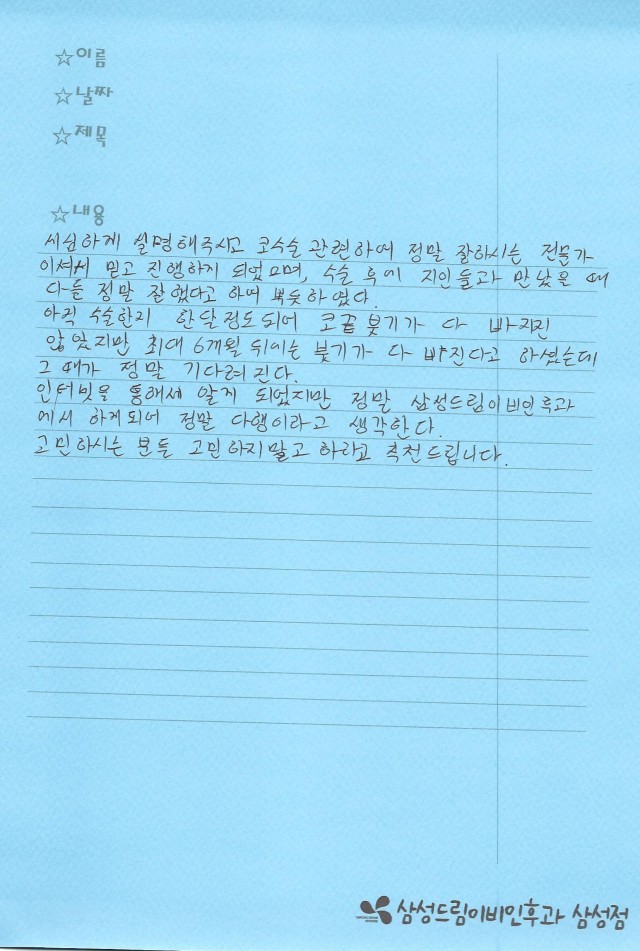 ☆이름
☆날짜
☆제목
☆내용
세심하게 설명해주시고 코수술 관련하여 정말 잘하시는 전문가
이셔서 믿고 진행하게 되었으며, 수술 후에 지인들과 만났을 때
다들 정말 잘 했다고 하여 뿌듯하였다.
아직 수술한지 한달정도되어 코끝 붓기가 다 빠지진
않았지만 최대 6개월 뒤에는 붓기가 다 빠진다고 하셨는데
그 때가 정말 기다려진다.
인터넷을 통해서 알게 되었지만 정말 삼성드림이비인후과
에서 하게되어 정말 다행이라고 생각한다.
고민하시는 분들 고민하지말고 하라고 추천드립니다.
삼성드림이비인후과 삼성점